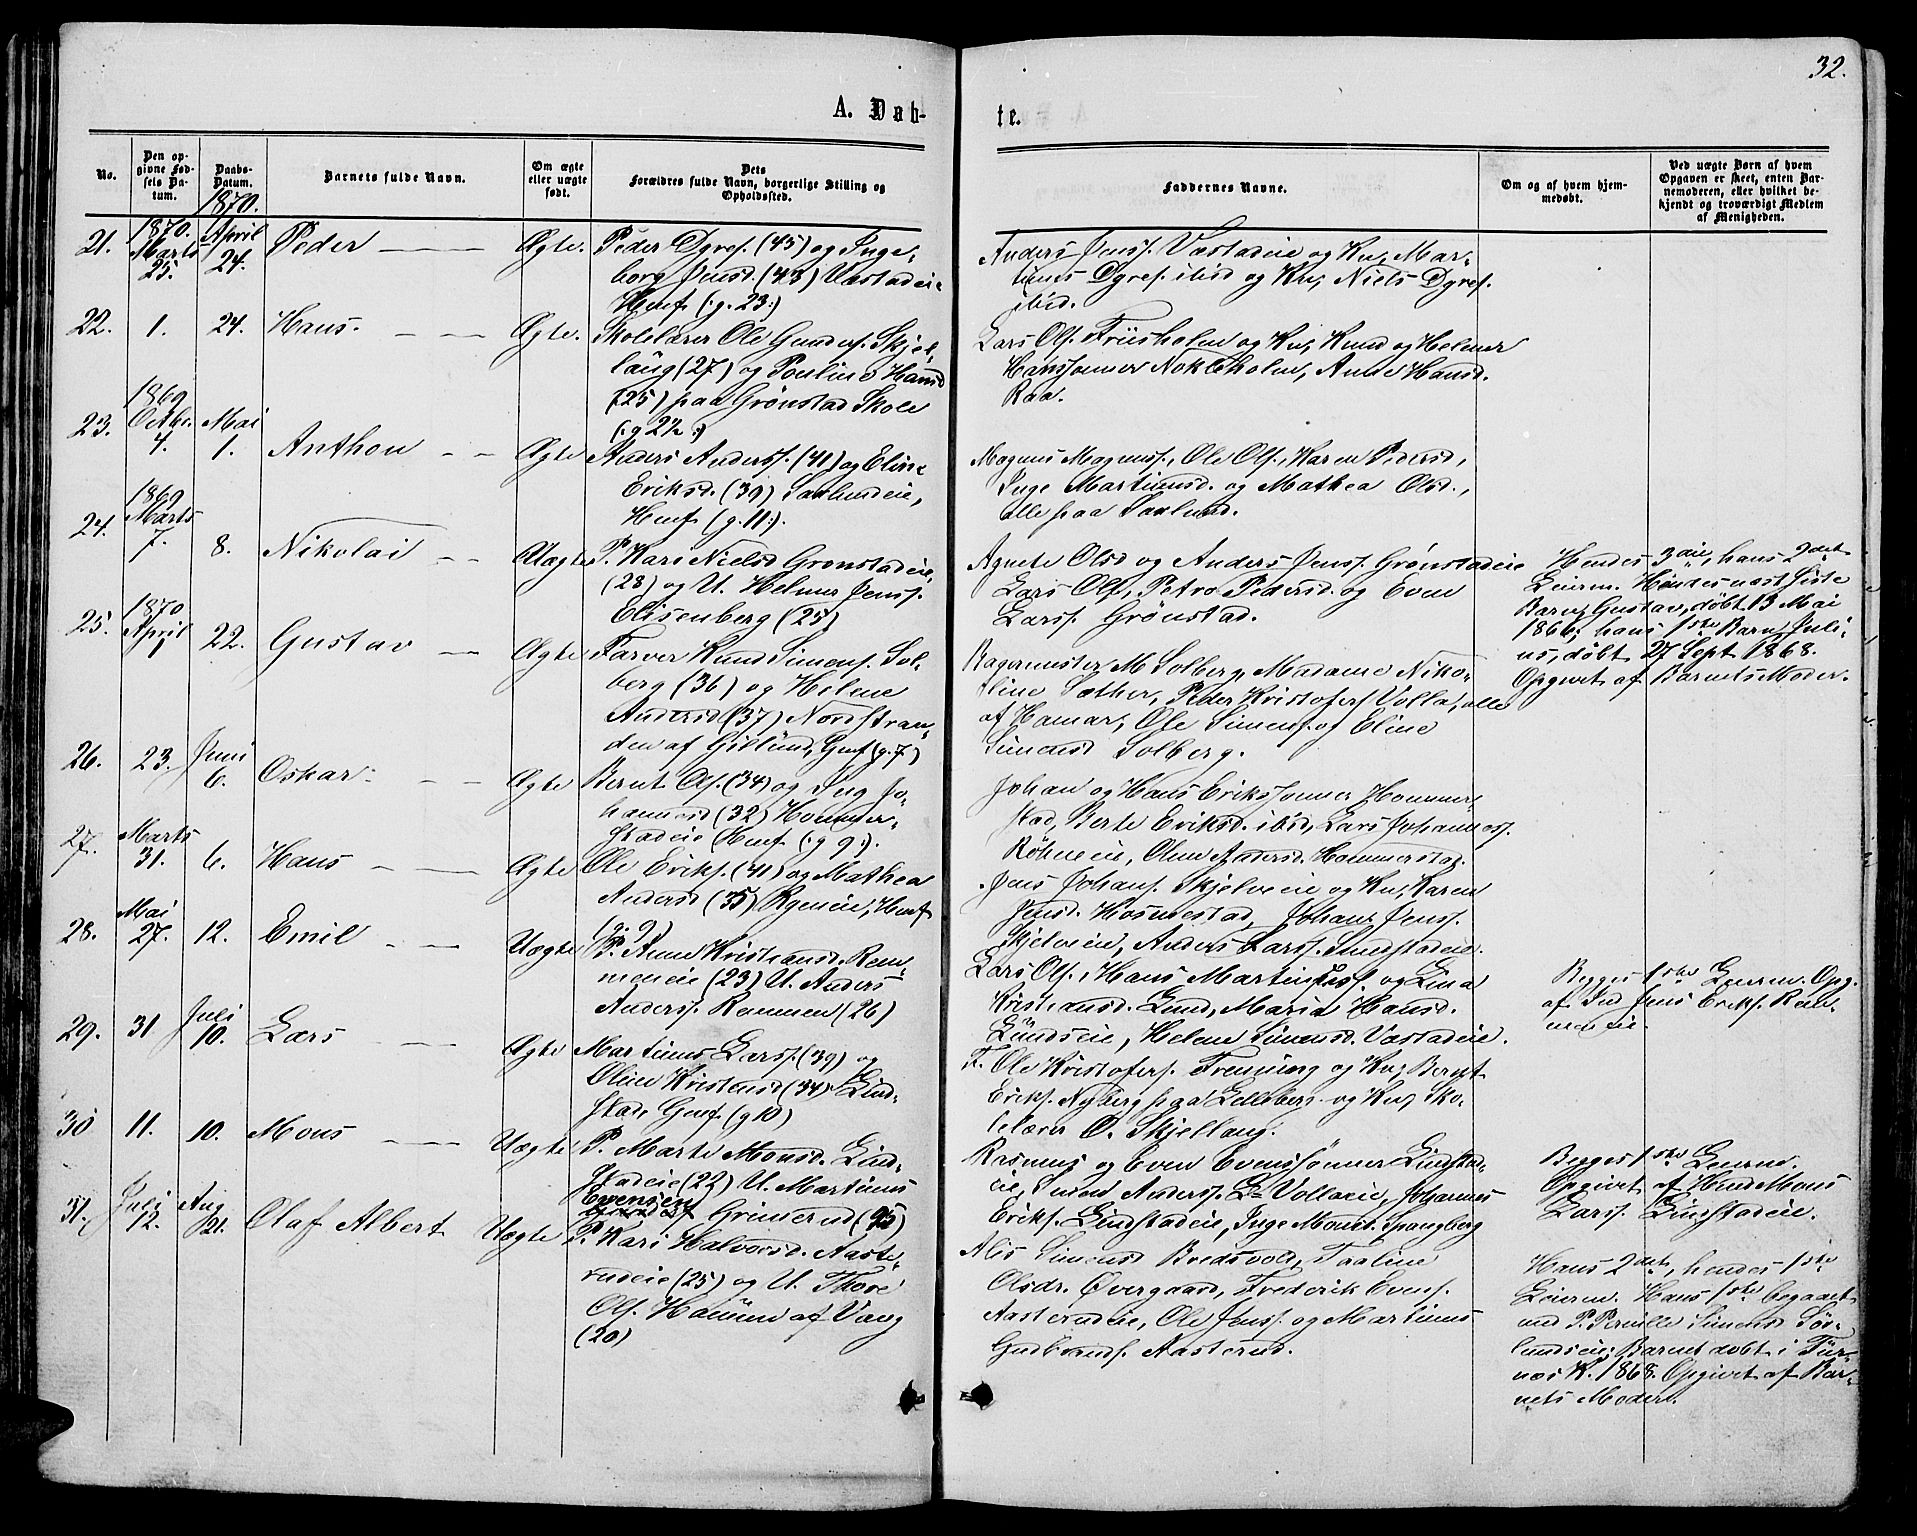 32.
A. Døb-
te.
No.
Den op-
givne Fød-
sels Da-
tum.
Daabs-
Datum.
1870.
Barnets fulde Navn.
Om ægte
eller uægte
født.
Dets
Forældres fulde Navn, borgerlige Stilling og
Opholdssted.
Faddernes Navne.
Om og af hvem hjem-
medøbt.
Ved uægte Børn af hvem
Opgaven er skeet, enten Bar-
nemoderen, eller hvilket be-
kjendt og troværdigt Medlem
af Menigheden.
21.
1870.
Marts
25.
April
24.
Peder
Ægte.
Peder Dyres. (45) og Inge-
borg Jensd. (43) Væstadeie
Hmf. (:g. 23:)
Anders Jenss. Væstadeie og Ku, Mar-
tinus Dyres. ibid og Ku, Niels Dyres.
ibid.
22.
1.
24.
Hans.
Ægte.
Skolelærer Ole Gunders. Skjel-
laug (27) og Pouline Hansd
(25) paa Grønstad Skole
(:g 2½:)
Lars Ols. Friisholm og Ku, Knud og Helmer
Hanssønner Nokleholm, Anne Hansd.
Raa.
23.
1869
Octbr.
4.
Mai
1.
Anthon
Ægte
Anders Anderss. (41) og Eline
Eriksd. (39) Saxlundeie,
Hmf (g. 11:).
Magnus Magnuss., Ole Ols., Karen Pedersd,
Inge Martinusd. og Mathea Olsd.,
alle paa Saxlund.
24.
1869
Marts
7.
8.
Nikolai
Uægte
P. Kari Nielsd Grønstadeie
(28) og U. Helmer Jenss.
Elisenberg (25)
Agnete Olsd og Anders Jenss. Grønstadeie
Lars Ols, Petra Pedersd. og Even
Larss. Grønstad.
Hendes 3die, hans 2det
Leierm. Hendes næst sidste
Barn, Gustav, døbt 13 Mai
1866; hans 1ste Barn, Juli-
us, døbt 27 Sept 1868.
Opgivet af Barnets Moder.
25.
1870
April
1
22.
Gustav
Ægte
Farver Knud Simens. Sol-
berg (36) og Helene
Andersd (37) Nordstran-
den af Gillund, Gmf (g. 7)
Bagermester M. Solberg, Madame Niko-
line Sæther, Peder Kristofers Volla, alle
af Hamar, Ole Simens. og Eline
Simensd Solberg.
26.
23.
Juni
6.
Oskar
Ægte
Bernt Ols. (34) og Ing Jo-
hannesd (32) Hommer-
stadeie Hmf (:g 9:).
Johan og Hans Erikssønner Hommer-
stad, Berte Eriksd. ibid, Lars Johanness.
Røhneeie, Oline Andersd. Hommerstad.
27.
Marts
31.
6.
Hans
Ægte
Ole Eriks. (41) og Mathea
Andersd (35) Rgeneie, Hmf
(g. 9)
Jens Johans. Skjelveie og Ku, Karen
Jensd. Hosmestad, Johan Jenss.
Skjelveien, Anders Larss. Sundstadeie.
28.
Mai
27.
12.
Emil
Uægte
P. Anne Kristiansd. Rem-
meneie (23) U. Anders
Anderss. Remmen (26)
Lars Ols., Hans Martin Larss. og Lina
Kristiansd. Lund, Maria Hansd.
Lundseie, Helene Simensd. Væstadeie.
Begges 1ste Leierm. Opg.
af Ind Jens Eriks. Rem-
meneie.
29.
31
Juli
10.
Lars
Ægte
Martinus Larss. (39) og
Oline Kristensd (34) Lind-
stad, Gmf. (g 10)
F. Ole Kristofers. Fremming og Ku, Bernt
Eriks. Nyberg paa Lilleberg og Ku, Sko-
lelærer O. Skjellaug.
30
11.
10.
Mons
Uægte
P. Marte Monsd. Lind-
stadeie (22) U. Martinus
Evensen
Grimerud (25)
Rasmus og Even Evenssønner Lindstad-
eie, Simen Anderss. L= Vollaeie, Johannes
Eriks. Lindstadeie, Inge Monsd. Spangberg
Begges 1ste Leierm.
Opgivet af Hmd Mons
Larss. Lindstadeie.
31.
Juli
12.
Aug
21.
Olaf Albert
Uægte
P. Kari Halvorsd. Aaste-
rudeie (25) og U. Thore
Ols. Hammen af Vang
(20)
Alis Simensd Bredsvold, Taaline
Olsdr. Øvergaard, Frederik Evens.
Aasterudeie, Ole Jenss. og Martinus
Gudbrands. Aasterud.
Hans 2det, hendes 1ste
Leierm. Hans 1ste begaaet
med P. Pernille Simensd Sør-
lundseie; Barnet døbt i Fur-
næs K. 1868. Opgivet af Bar-
nets Moder.